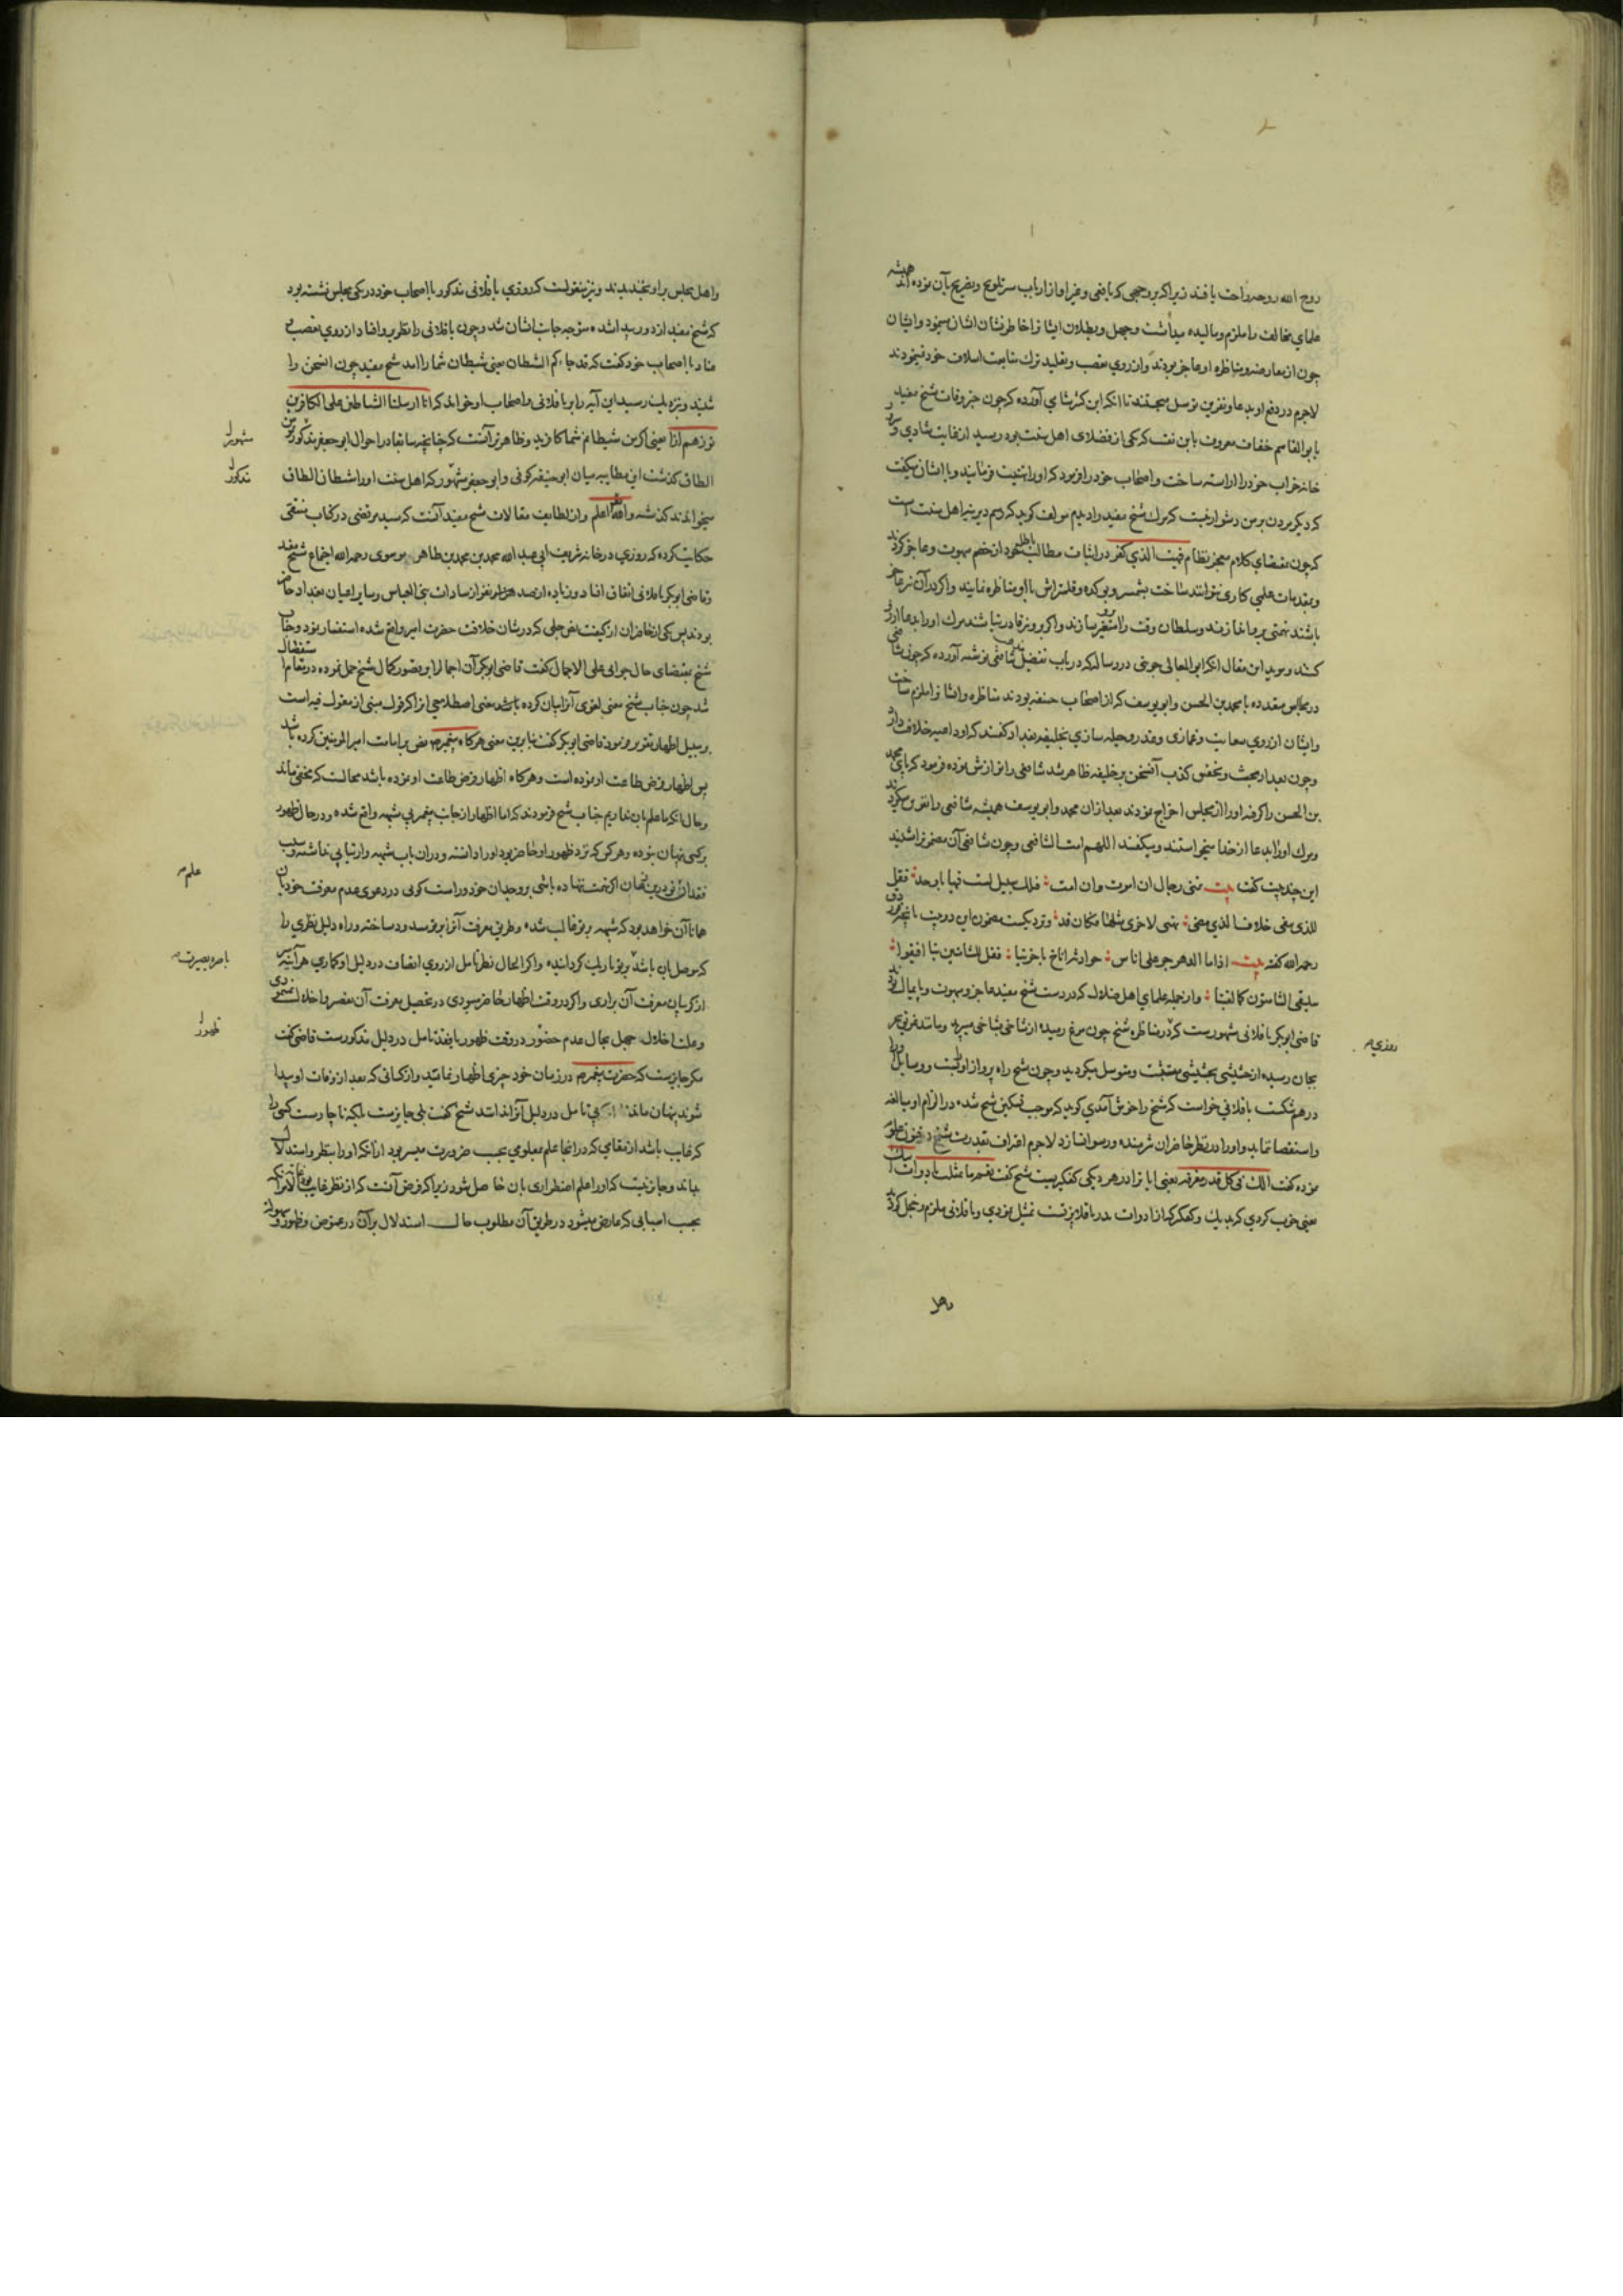 روح الله روحه راحت یافتند زیرا که بر وجهی که یافعی و غیر او از ارباب سیر تلویح و تصریح بآن نموده اند همیشه
علمای مخالف را ملزم و مالیده میداشت و جهل و بطلان ایشانرا خاطر نشان ایشان مینمود و ایشان
چون از معارضه و مناظره او عاجز بودند و از روی تعصب و تقلید ترک متابعت اسلاف خود نمینمودند
لاجرم در دفع او بدعا و نفرین توسل میجستند تا آنکه ابن کثیر شامی آورده که چون خبر وفات شیخ مفید
بابو القاسم خفاف معروف بابن نقیب که یکی از فضلای اهل سنت بود رسید از غایت شادی و سرور
خانه خراب خود را آراسته ساخت و اصحاب خود را فرمود که او را تهنیت فرمایند و با ایشان میگفت
که دیگر مردن بر من دشوار نیست که مرگ شیخ مفید را دیدم مولف گوید که رسم دیرینه اهل سنت است
که چون بمقتضای کلام معجز نظام فبهت الذی کفر در اثبات مطالب باطله خود از خصم مبهوت و عاجز گردند
و بمقدمات علمی کاری نتوانند ساخت بشمشیر و بوکده و قلتراش با او مناظره نمایند و اگر در آن نیز عاجز
باشند تهمتی بر ما خازند و سلطان وقت را متغیر سازند و اگر برو نیز قادر نباشند مرگ او را بدعا آرزو
کنند و موید این مقال آنکه ابو المعالی جوینی در رساله که در باب تفضیل مذهب شافعی نوشته آورده که چون شافعی
در مجالس متعدده با محمد بن الحسن و ابو یوسف که از اصحاب حنیفه بودند مناظره و ایشانرا ملزم ساخت
و ایشان از روی معایب و غمازی و غدر و حیله سازی بخلیفه بغداد گفتند که او داعیه خلافت دارد
و چون بعد از بحث و تحقیق کذب آن سخن بر خلیفه ظاهر شد شافعی را نوازش نموده فرمود که پای محمد
بن الحسن را گرفته او را از مجلس اخراج نمودند بعد از آن محمد و ابو یوسف همیشه شافعی را نفرین میکردند
و مرگ او را بدعا از خدا میخواستند و میگفتند اللهم امت الشافعی و چون شافعی آن معنی را شنید
این چند بیت گفت بیت تمنی رجال ان اموت و ان امت فتلک سبیل لست فیها باوحد فقل
للذی یبغی خلاف الذی مضی تهیی لاخری مثلها فکان قد و نزدیکست مضمون این دو بیت بآنچه فرزدق
رحمه الله گفته بیت اذا ما الدهر جر علی اناس حوادثه اناخ باخرینا فقل للشامتین بنا افیقوا
سیلقی الشامتون کما لقینا و از جمله علمای اهل ضلال که در دست شیخ مفید عاجز و مبهوت و پایمال بودند
قاضی ابوبکر باقلانی مشهورست که در مناظره شیخ چون مرغ رمیده از شاخی بشاخی میپرید و مانند غریق بحر
بجان رسیده از حشیشی بحشیشی متشبث و متوسل میگردید و چون شیخ راه پرواز او را بست و وسایل او را
درهم شکست باقلانی خواست که شیخ را خوش آمدی گوید که موجب تسکین شیخ شده در الزام او مبالغه
و استقصا ننماید و او را در نظر حاضران شرمنده و رسوا نسازد لاجرم اعتراف بقدرت شیخ در فنون علوم
نموده گفت الک فی کل قدر مغرفه یعنی ایا ترا در هر دیگی کفگیریست شیخ گفت نعم ما تمثلت بادوات ابیک
یعنی خوب کردی که بدیک و کفگیر که از ادوات پدر باقلا پزتست تمثیل نمودی و باقلانی ملزم و خجل گردید
روزی
و اهل
و اهل مجلس بر او بخندیدند و نیز منقولست که روزی باقلانی مذکور با اصحاب خود در یکی مجلس نشسته بود
که شیخ مفید از دور پیدا شده متوجه جانب ایشان شد و چون باقلانی را نظر برو افتاد از روی تعصب و
عناد با اصحاب خود گفت که قد جاءکم الشیطان یعنی شیطان شما را آمد شیخ مفید چون این سخن را
شنید و نزدیک رسید این آیه را بر باقلانی و اصحاب او خواند که انا ارسلنا الشیاطین علی الکافرین
تؤزهم ازا یعنی اگر من شیطانم شما کافرید و ظاهرتر آنست که چنانچه سابقا در احوال ابو جعفر مذکور مومن
الطاق گذشت این مطایبه میان ابو حنیفه کوفی و ابو جعفر مشهور که اهل سنت او را شیطان الطاق
میخوانند گذشته و الله اعلم و از لطایف مقالات شیخ مفید آنست که سید مرتضی در کتاب منتقی
حکایت کرده که روزی در خانه شریف ابی عبد الله محمد بن محمد بن طاهر موسوی رحمه الله اجتماع شیخ مفید
و قاضی ابوبکر باقلانی اتفاق افتاد و زیاده از صد هزار نفر از سادات بنی العباس و سایر اعیان بغداد حاضر
بودند پس یکی از حاضران از کیفیت نص جلی که در شان خلافت حضرت امیر واقع شده استفسار نمود و جناب
شیخ بمقتضای حال جوابی علی الاجمال گفت قاضی ابوبکر آن اجمال را بر قصور کمال شیخ حمل نموده در مقام استفصال
شد چون جناب شیخ معنی لغوی آنرا بیان کرده باشد معنی اصطلاحی او را که قول مبنی از مقول فیه است
بر سبیل اظهار تقریر فرمود قاضی ابوبکر گفت بنابرین معنی هرگاه پیغمبر نص بر امامت امیر المومنین کرده باشد
پس اظهار فرض طاعت او نموده است و هرگاه اظهار فرض طاعت او نموده باشد محالست که مخفی ماند
و حال آنکه ما علم بآن نداریم جناب شیخ فرمودند که اما اظهار از جانب پیغمبر بی شبهه واقع شده و در حال ظهور
بر کسی پنهان نبوده و هر کس که نزد ظهور او حاضر بود او را دانسته و در آن باب شبهه و ارتیابی نداشته و سبب
هر آینه آن خواهد بود که شبهه بر تو غالب شده و طریق معرفت آنرا بر تو مسدود ساخته و راه دلیل نظری را
که موصل بآن باشد بر تو تاریک گردانیده و اگر الحال نظر تامل از روی انصاف در دلیل او کماری هر آینه سر
از گریبان معرفت آن براری و اگر در وقت اظهار حاضر میبودی در تحصیل معرفت آن مقصر و اخلال نمینمودی
و علت اخلال جهل بحال عدم حضور در وقت ظهور یا فقد تامل در دلیل مذکورست قاضی گفت
مگر جایزست که حضرت پیغمبر در زمان خود چیزی اظهار نمایند و از کسانی که بعد از وفات او پیدا
شوند پنهان ماند بی تامل در دلیل آنرا ندانند شیخ گفت بلی جایزست بلکه ناچارست کسی را
که غایب باشد از مقامی که در آنجا علم بمعلومی بحسب ضرورت میسر بود از آنکه او را بنظر و استدلال
بداند و جایز نیست که او را علم اضطراری بآن حاصل شود زیرا که فرض آنست که از نظر غایب بود
بحسب اسبابی که عارض میشود در طریق آن مطلوب حال استدلال بر آن در غموض و ظهور و سهولت
مشهور
مذکور
علم
باصره بصیرت
ظهور